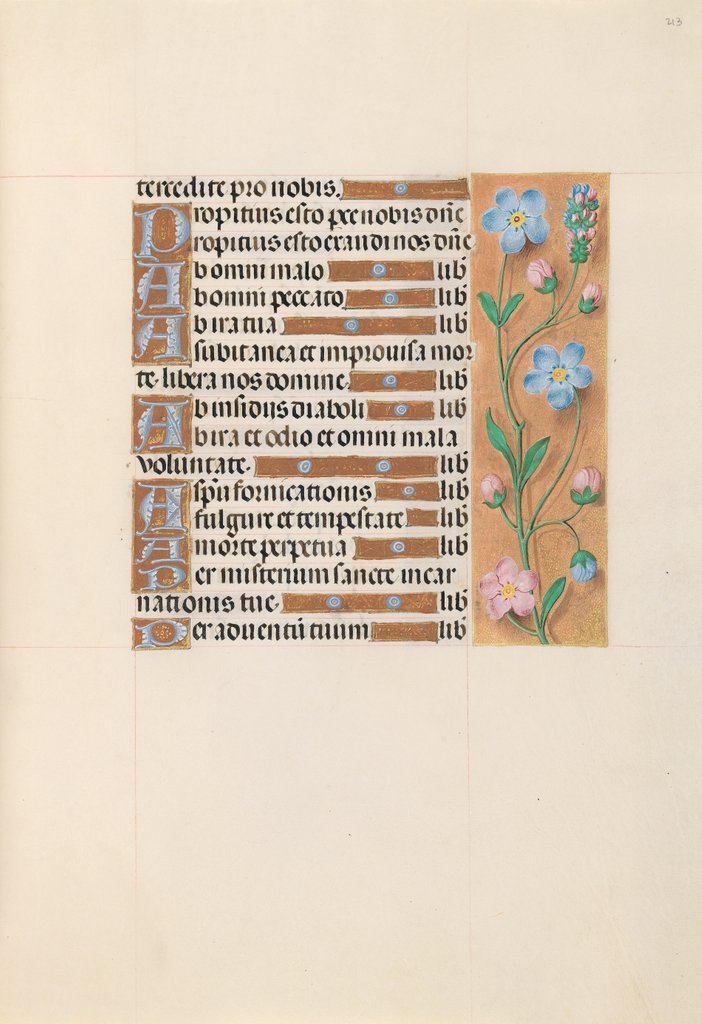 213
tercedite pro nobis.
Propitius esto p̄ce nobis dn̄e
Propitius esto exaudi nos dn̄e
Ab omni malo lib̄
Ab omni peccato lib̄
Ab ira tua lib̄
A subitanea et improuisa mor
te. libera nos domine. lib̄
Ab insidijs diaboli lib̄
Ab ira et odio et omni mala
voluntate. lib̄
A sp̄u fornicationis lib̄
A fulgure et tempestate lib̄
A morte perpetua lib̄
Per misterium sancte incar
nationis tue. lib̄
Per aduentū tuum lib̄